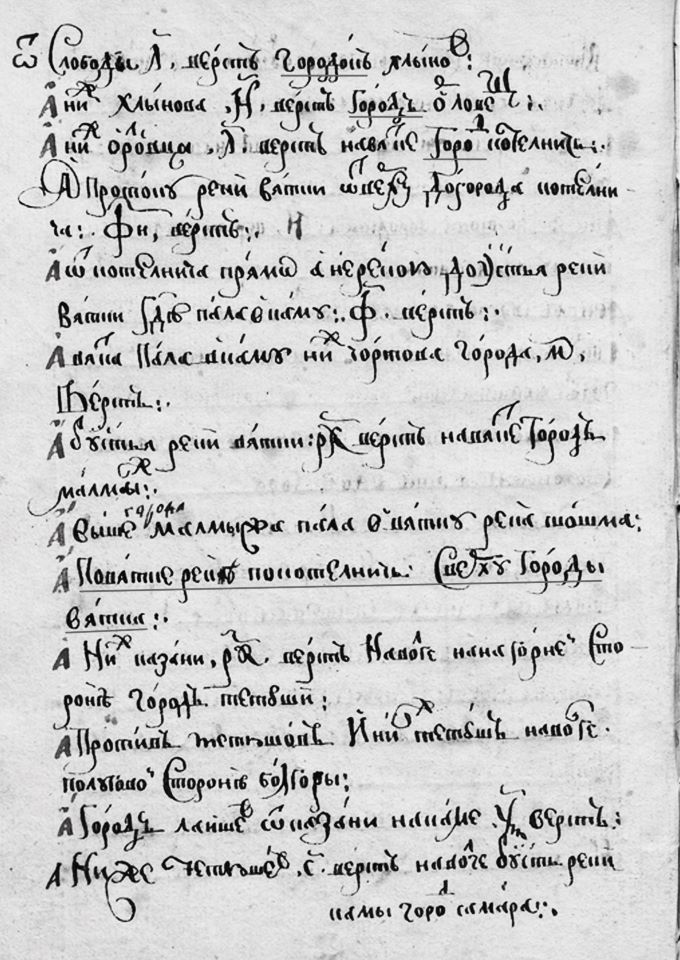 Ѿ Слободы л҃ верстъ городокъ хлыновъ:
А ниже хлынова н҃ верстъ городъ орловецъ:.
А ниже орловца л҃ верстъ на вятке город котелничь:.
А Протоку реки вятки ѿ верху до города котелни-
ча:. ф҃н верстъ:.
А ѿ котелнича прямѡ до устья реки
вятки где пала в каму:. ф҃ верстъ:.
А вятка Пала в каму ниж чортова города, м҃,
верстъ:.
А ѿ устья реки вятки: р҃к верстъ на вятке Городъ
малмыж:.
А выше города малмыжа пала в вятку река шошма:
А По вятке реке по котелничь: Сверху Городы
вятка:.
А Ниж казани, р҃к верстъ На волге на нагорнеи Сто-
роне городъ тетюши:
А Противъ тетюшовъ И ниж тетюшъ на волге
полуговои Стороне болгоры:
А Городъ лаишев ѿ казани на каме верстъ:
А Ниже тетюшев, с҃ верстъ на волге устъ реки
камы город самара:.